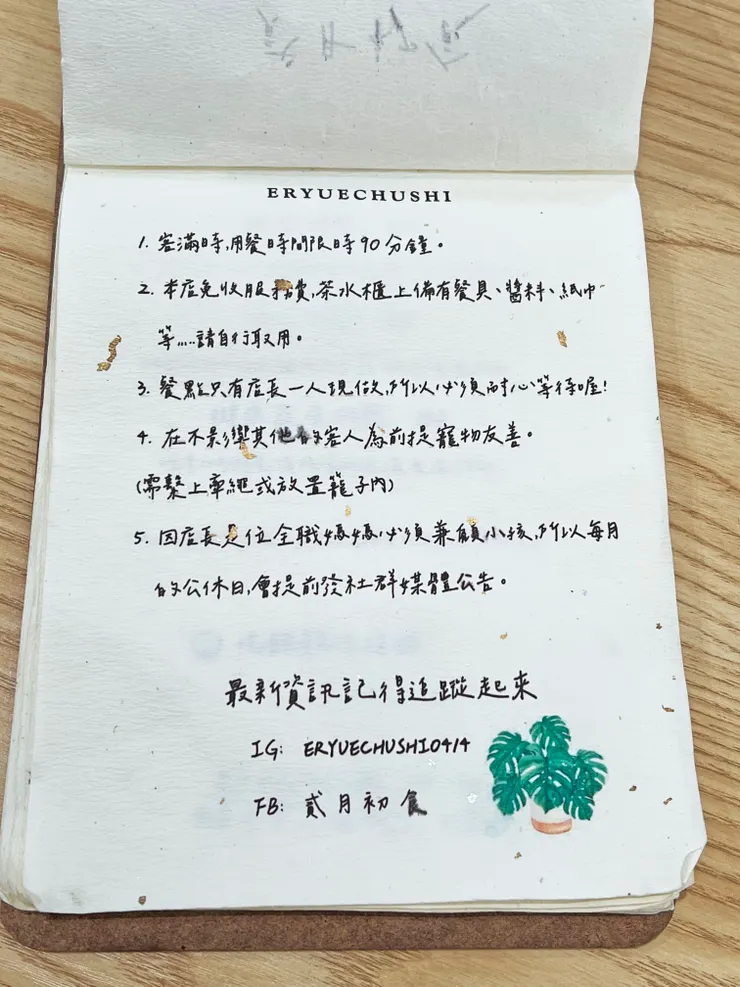 ERYUECHUSHI
1. 客滿時,用餐時間限時90分鐘。
2. 本店免收服務費,茶水櫃上備有餐具、醬料、紙巾
等.....請自行取用。
3. 餐點只有店長一人現做,所以必須耐心等待喔!
4. 在不影響其他的客人為前提寵物友善。
(需繫上牽繩或放置籠子內)
5. 因店長是位全職媽媽必須兼顧小孩,所以每月
的公休日,會提前發社群媒體公告。
最新資訊記得追蹤起來
IG: ERYUECHUSHI0414
FB: 貳月初食